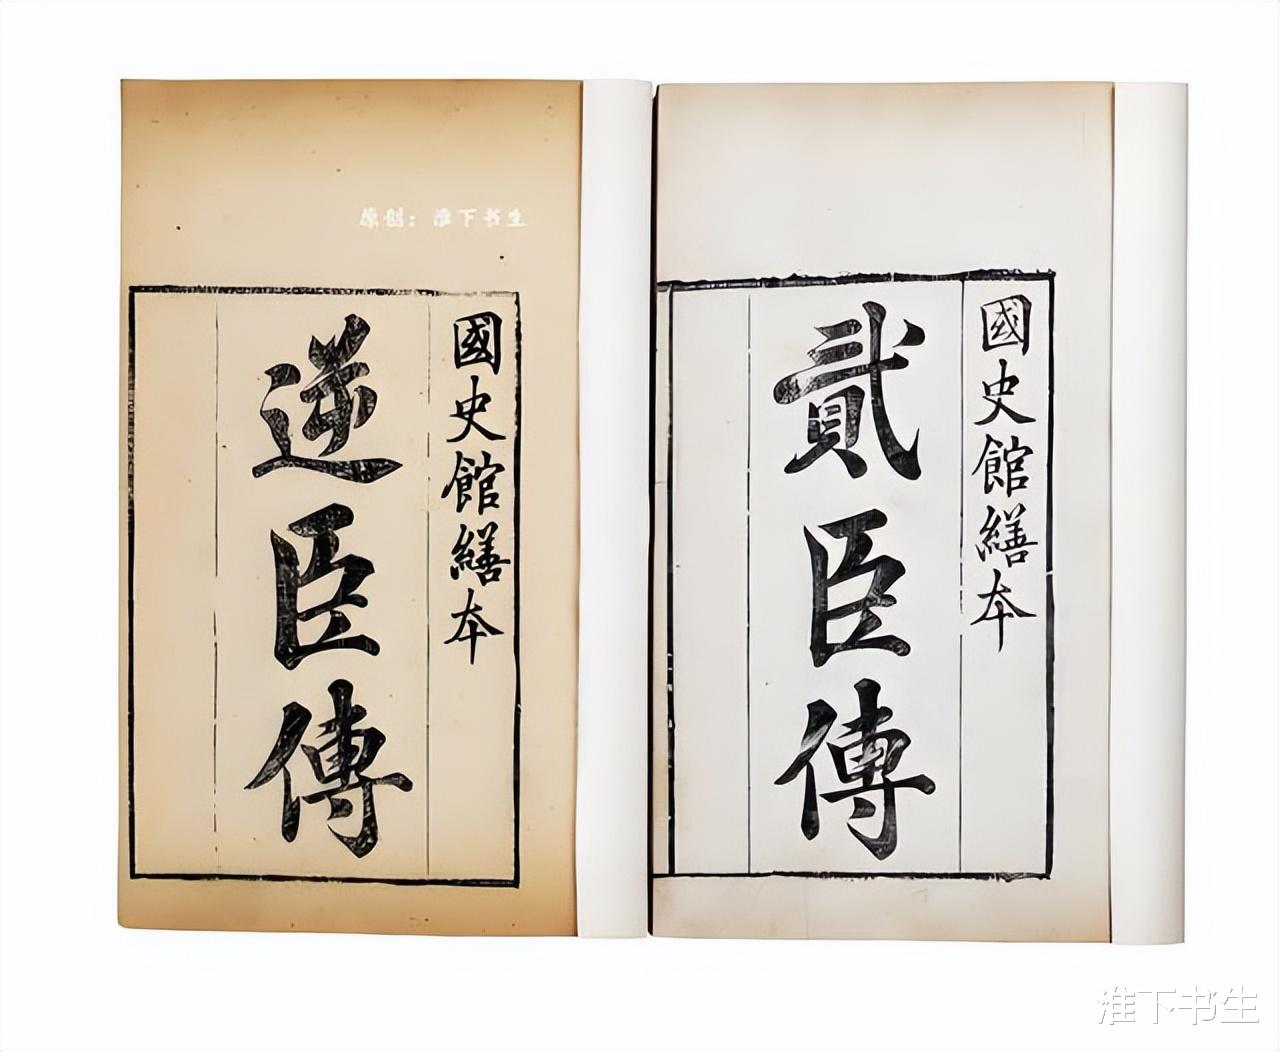 國史館繕本
貳臣傳
國史館繕本
逆臣傳
原创：淮下书生
淮下书生